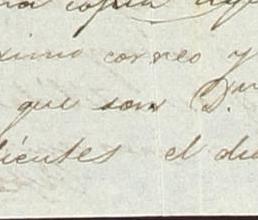 copia
ximo correo y
que son D.n
dientes el dia